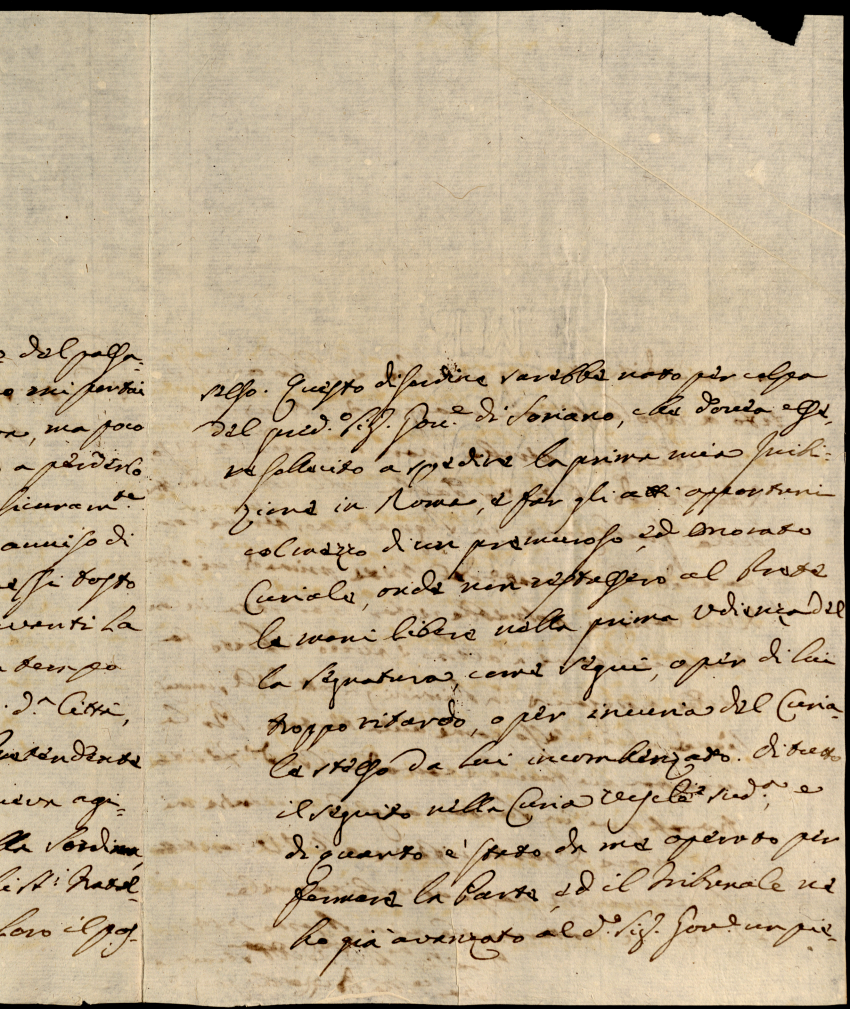 del passa-
mi portai
ma poco
a perderlo
sicuram.te
auuiso di
tosto
uenti La
tempo
d.a Città,
Pretendente
agi-
Sordina,
Loro il pos-
sesso. Questo disordine sarebbe nato per colpa
del pred.o Sig.r Gov.e di Soriano, che doveva esse-
re sollecito a spedire la prima mia Inibi-
zione in Roma, e far gli atti opportuni
col mezzo di un premuroso, ed onorato
Curiale, onde non restassero al Prete
le mani libere nella prima Udienza del
la Segnatura, come seguì, o per di lui
troppo ritardo, o per incuria del Curia-
le stesso da lui incombenzato. Di tutto
il seguito nella Curia sud.a, e
di quanto è stato da me operato per
fermare la Parte, ed il Tribunale ne
ho già avanzato al d.o Sig.r Gov.e un pie-